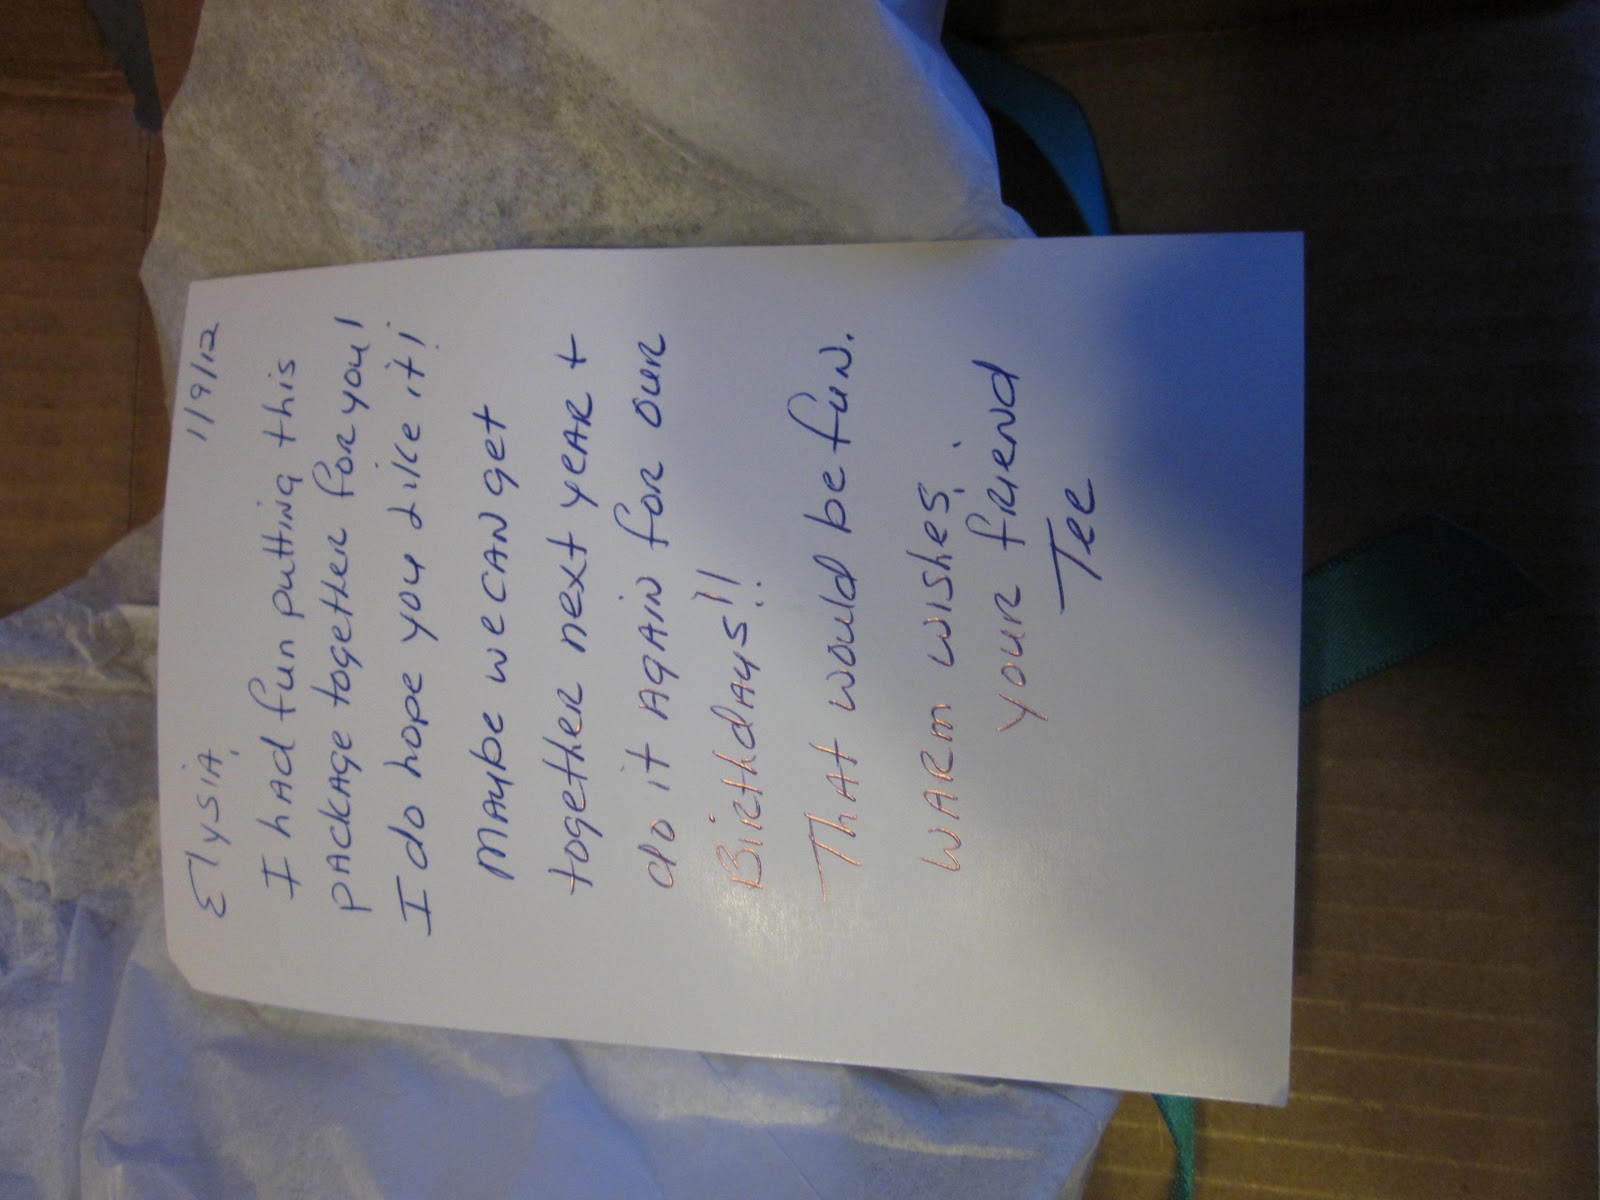 1/9/12
Elysia,
I had fun putting this
package together for you!
I do hope you like it!
Maybe we can get
together next year +
do it again for our
Birthdays!!
That would be fun.
Warm wishes,
your friend
Tee